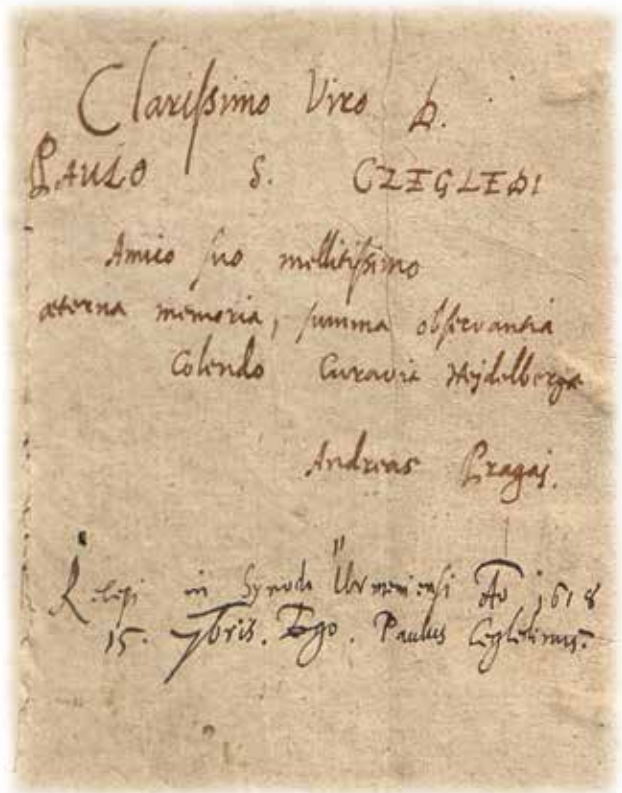 Clarissimo Viro D.
PAULO S. CZEGLEDI
Amico suo mellitissimo
æterna memoria, summa observantia
Colendo Curavit Heydelbergæ
Andreas Pragaj.
in Synodo Ao 1618
15. 7bris. Ego. Paulus Cegledinus.